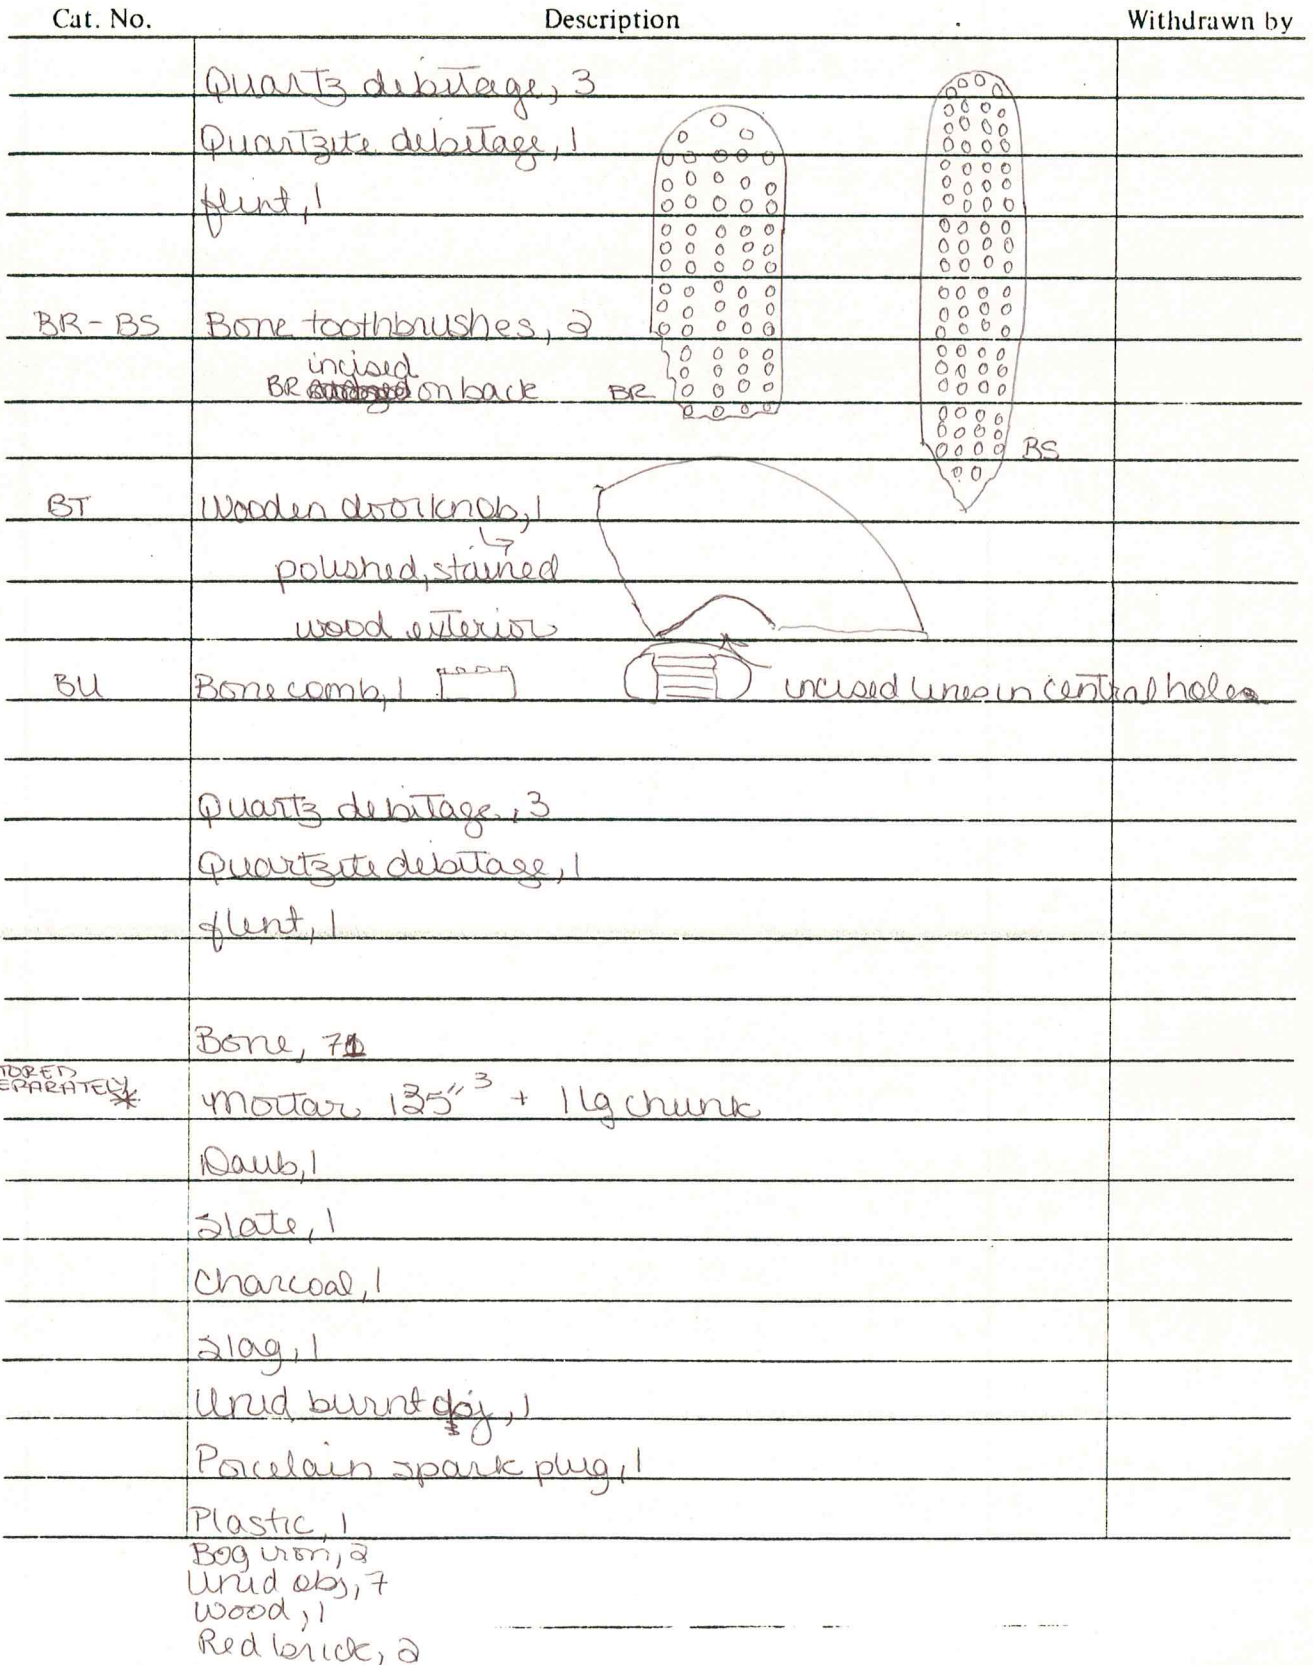 Cat. No. Description Withdrawn by
Quartz debitage, 3
Quartzite debitage, 1
flint, 1
BR-BS Bone toothbrushes, 2
incised
BR on back BR
BS
BT Wooden doorknob, 1
polished, stained
wood exterior
BU Bone comb, 1 incised lines in central hole
Quartz debitage, 3
Quartzite debitage, 1
flint, 1
Bone, 71
TORED
EPARATELY * Mortar 135"3 + 1 lg chunk
Daub, 1
Slate, 1
Charcoal, 1
Slag, 1
Unid burnt obj, 1
Porcelain spark plug, 1
Plastic, 1
Bog iron, 2
Unid obj, 7
Wood, 1
Red brick, 2